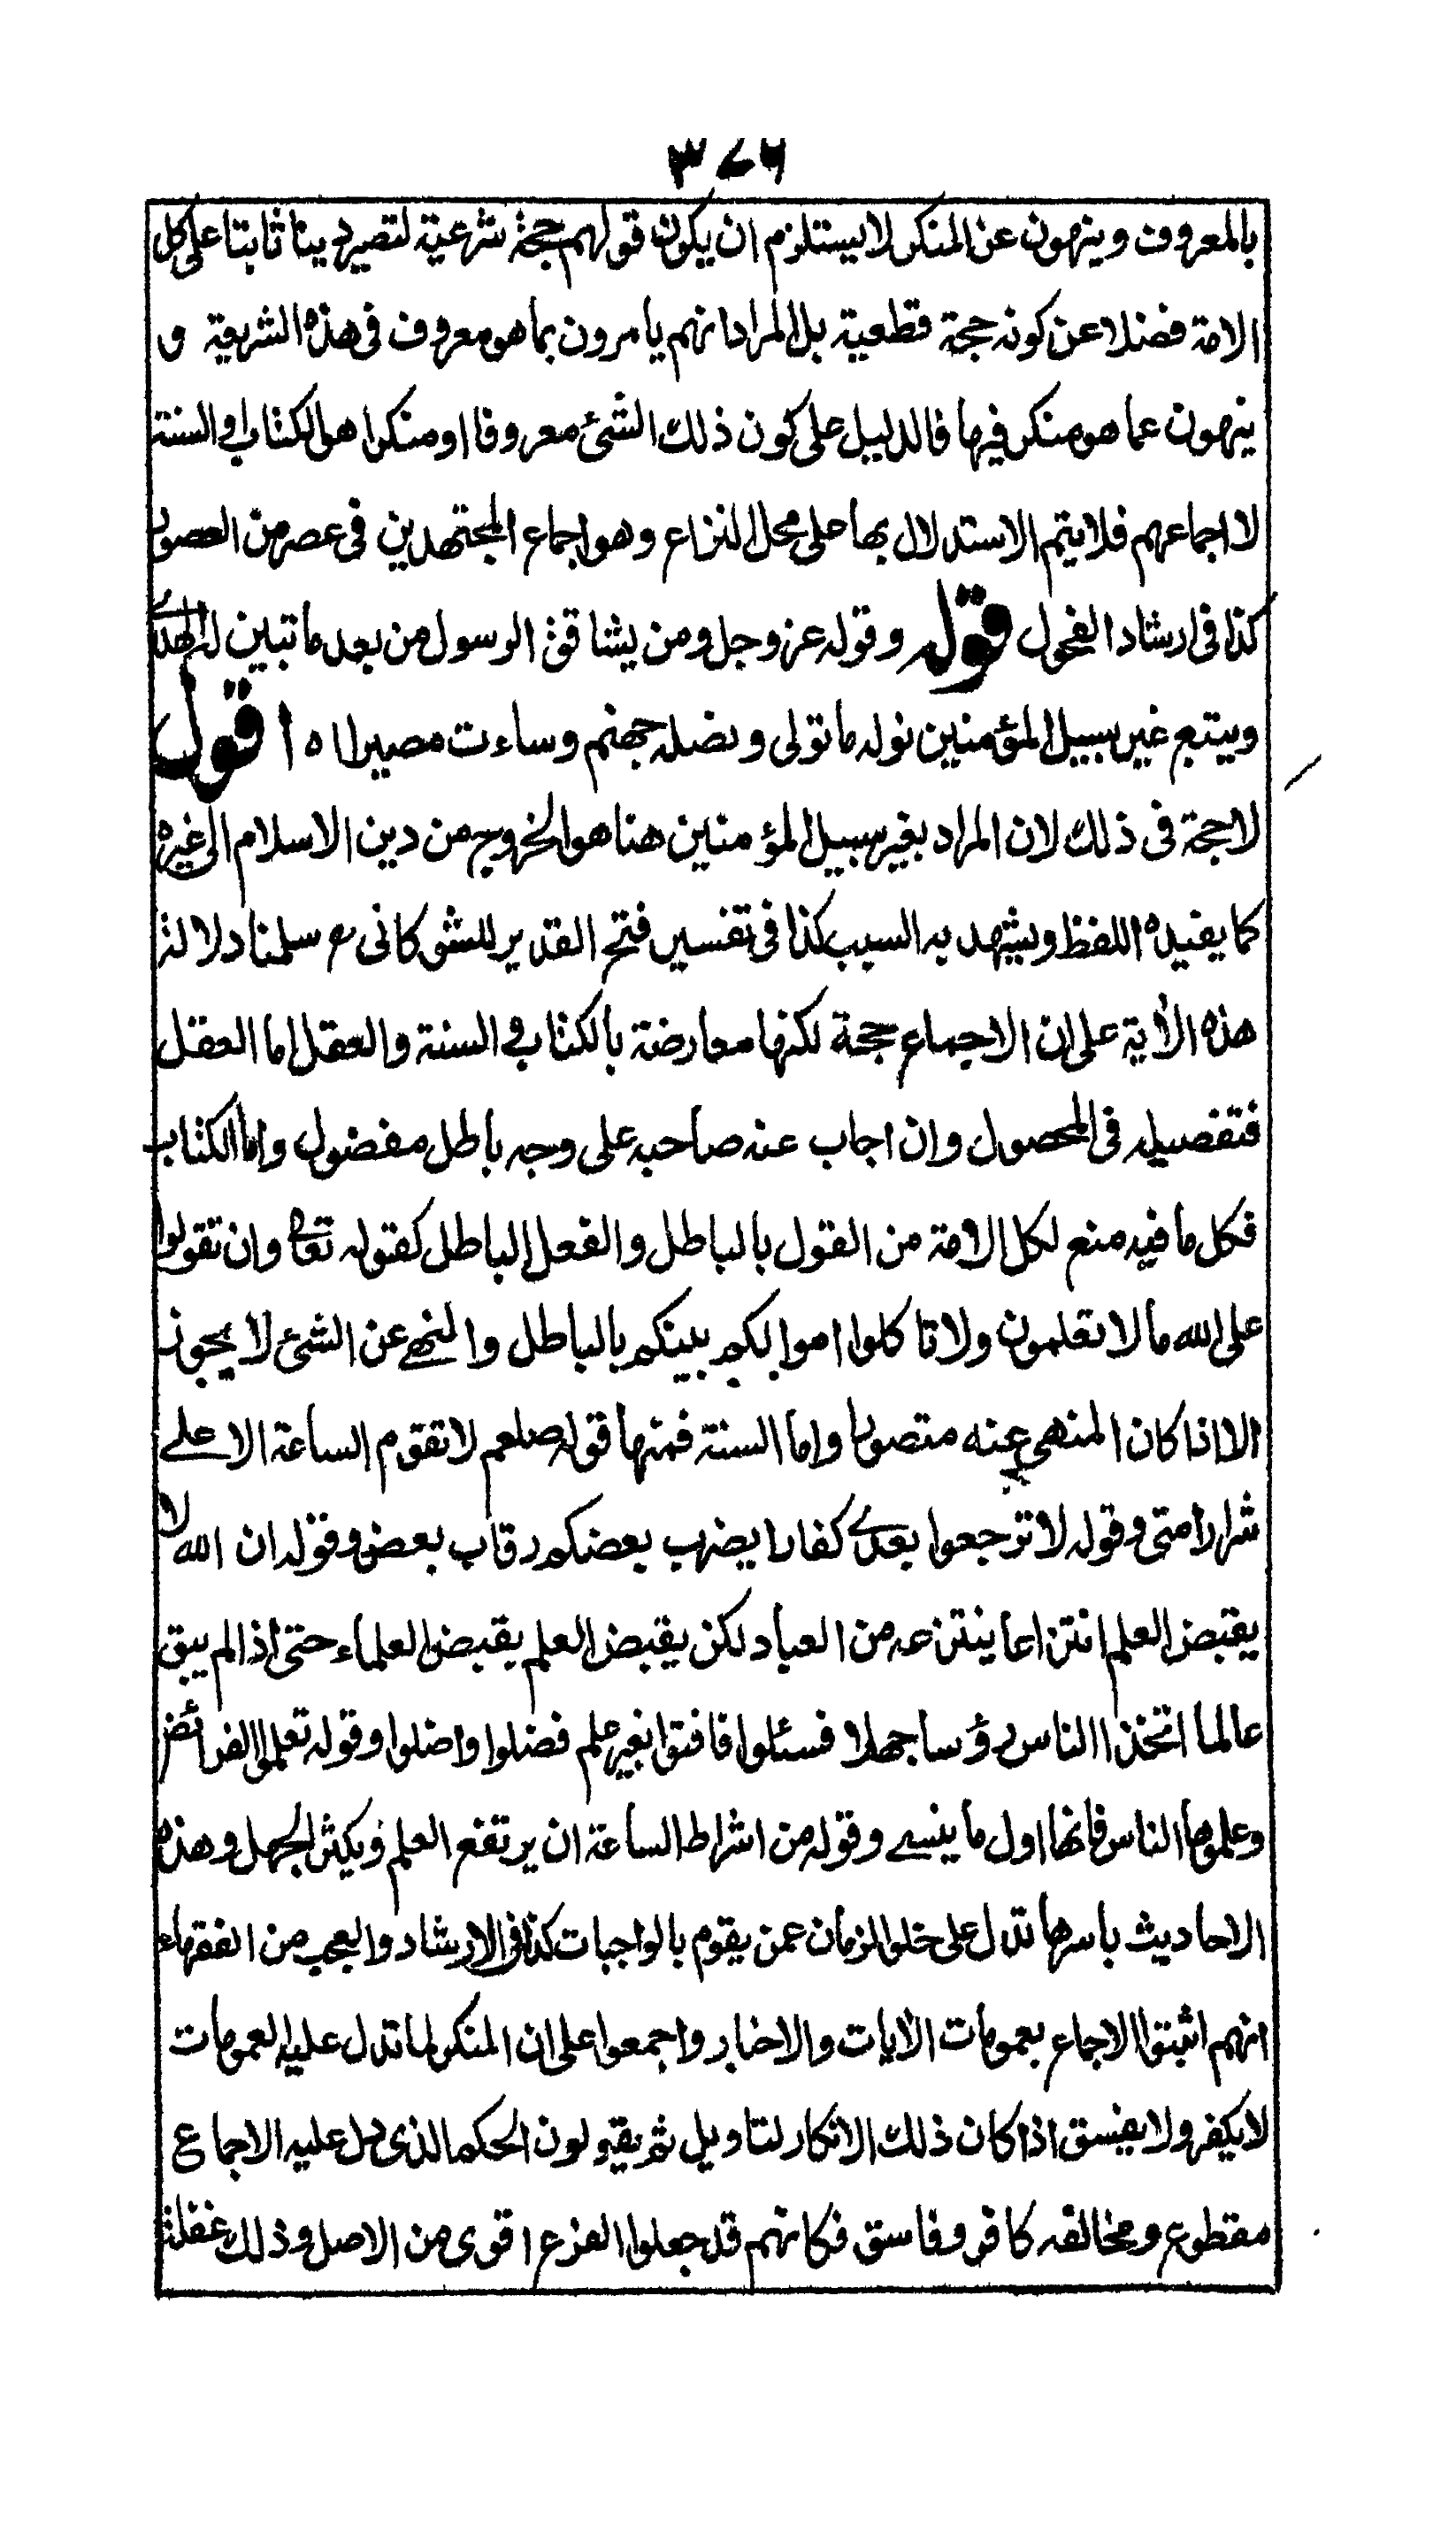 ٣٧٦
بالمعروف وينهون عن المنكر لا يستلزم ان يكون قولهم حجة شرعية لتصير دينا ثابتا على كل
الامة فضلا عن كونه حجة قطعية بل المراد انهم يامرون بما هو معروف فى هذه الشريعة و
ينهون عما هو منكر فيها فالدليل على كون ذلك الشئ معروفا او منكرا هو الكتاب او السنة
لا اجماعهم فلا يتم الاستدلال بها على محل النزاع وهو اجماع المجتهدين فى عصر من العصور
كذا فى ارشاد الفحول قوله وقوله عز وجل ومن يشاقق الرسول من بعد ما تبين له الهدى
ويتبع غير سبيل المؤمنين نوله ما تولى ونصله جهنم وساءت مصيرا اه اقول
لا حجة فى ذلك لان المراد بغير سبيل المؤمنين هنا هو الخروج من دين الاسلام الى غيره
كما يفيده اللفظ ويشهد به السبب كذا فى تفسير فتح القدير للشوكانى رح سلمنا دلالة
هذه الأية على ان الاجماع حجة لكنها معارضة بالكتاب و السنة والعقل اما العقل
فتفصيله فى المحصول وان اجاب عنه صاحبه على وجه باطل مفضول واما الكتاب
فكل ما فيه منع لكل الامة من القول بالباطل والفعل الباطل كقوله تعالى وان تقولوا
على الله ما لا تعلمون ولا تاكلوا اموالكم بينكم بالباطل والنهى عن الشئ لا يجوز
الا اذا كان المنهى عنه متصورا واما السنة فمنها قوله صلعم لا تقوم الساعة الا على
شرار امتى وقوله لا ترجعوا بعدى كفارا يضرب بعضكم رقاب بعض وقوله ان الله لا
يقبض العلم انتزاعا ينتزعه من العباد لكن يقبض العلم بقبض العلماء حتى اذا لم يبق
عالما اتخذ الناس رؤسا جهلا فسئلوا فافتوا بغير علم فضلوا واضلوا وقوله تعلموا الفرائض
وعلموها الناس فانها اول ما ينسى وقوله من اشراط الساعة ان يرتفع العلم ويكثر الجهل وهذه
الاحاديث باسرها تدل على خلو الزمان عمن يقوم بالواجبات كذا فى الارشاد والعجب من الفقهاء
انهم اثبتوا الاجماع بعمومات الأيات والاخبار واجمعوا على ان المنكر لما تدل عليه العمومات
لا يكفر ولا يفسق اذا كان ذلك الانكار لتاويل ثم يقولون الحكم الذى دل عليه الاجماع
مقطوع ومخالفه كافر وفاسق فكانهم قد جعلوا الفرع اقوى من الاصل وذلك غفلة